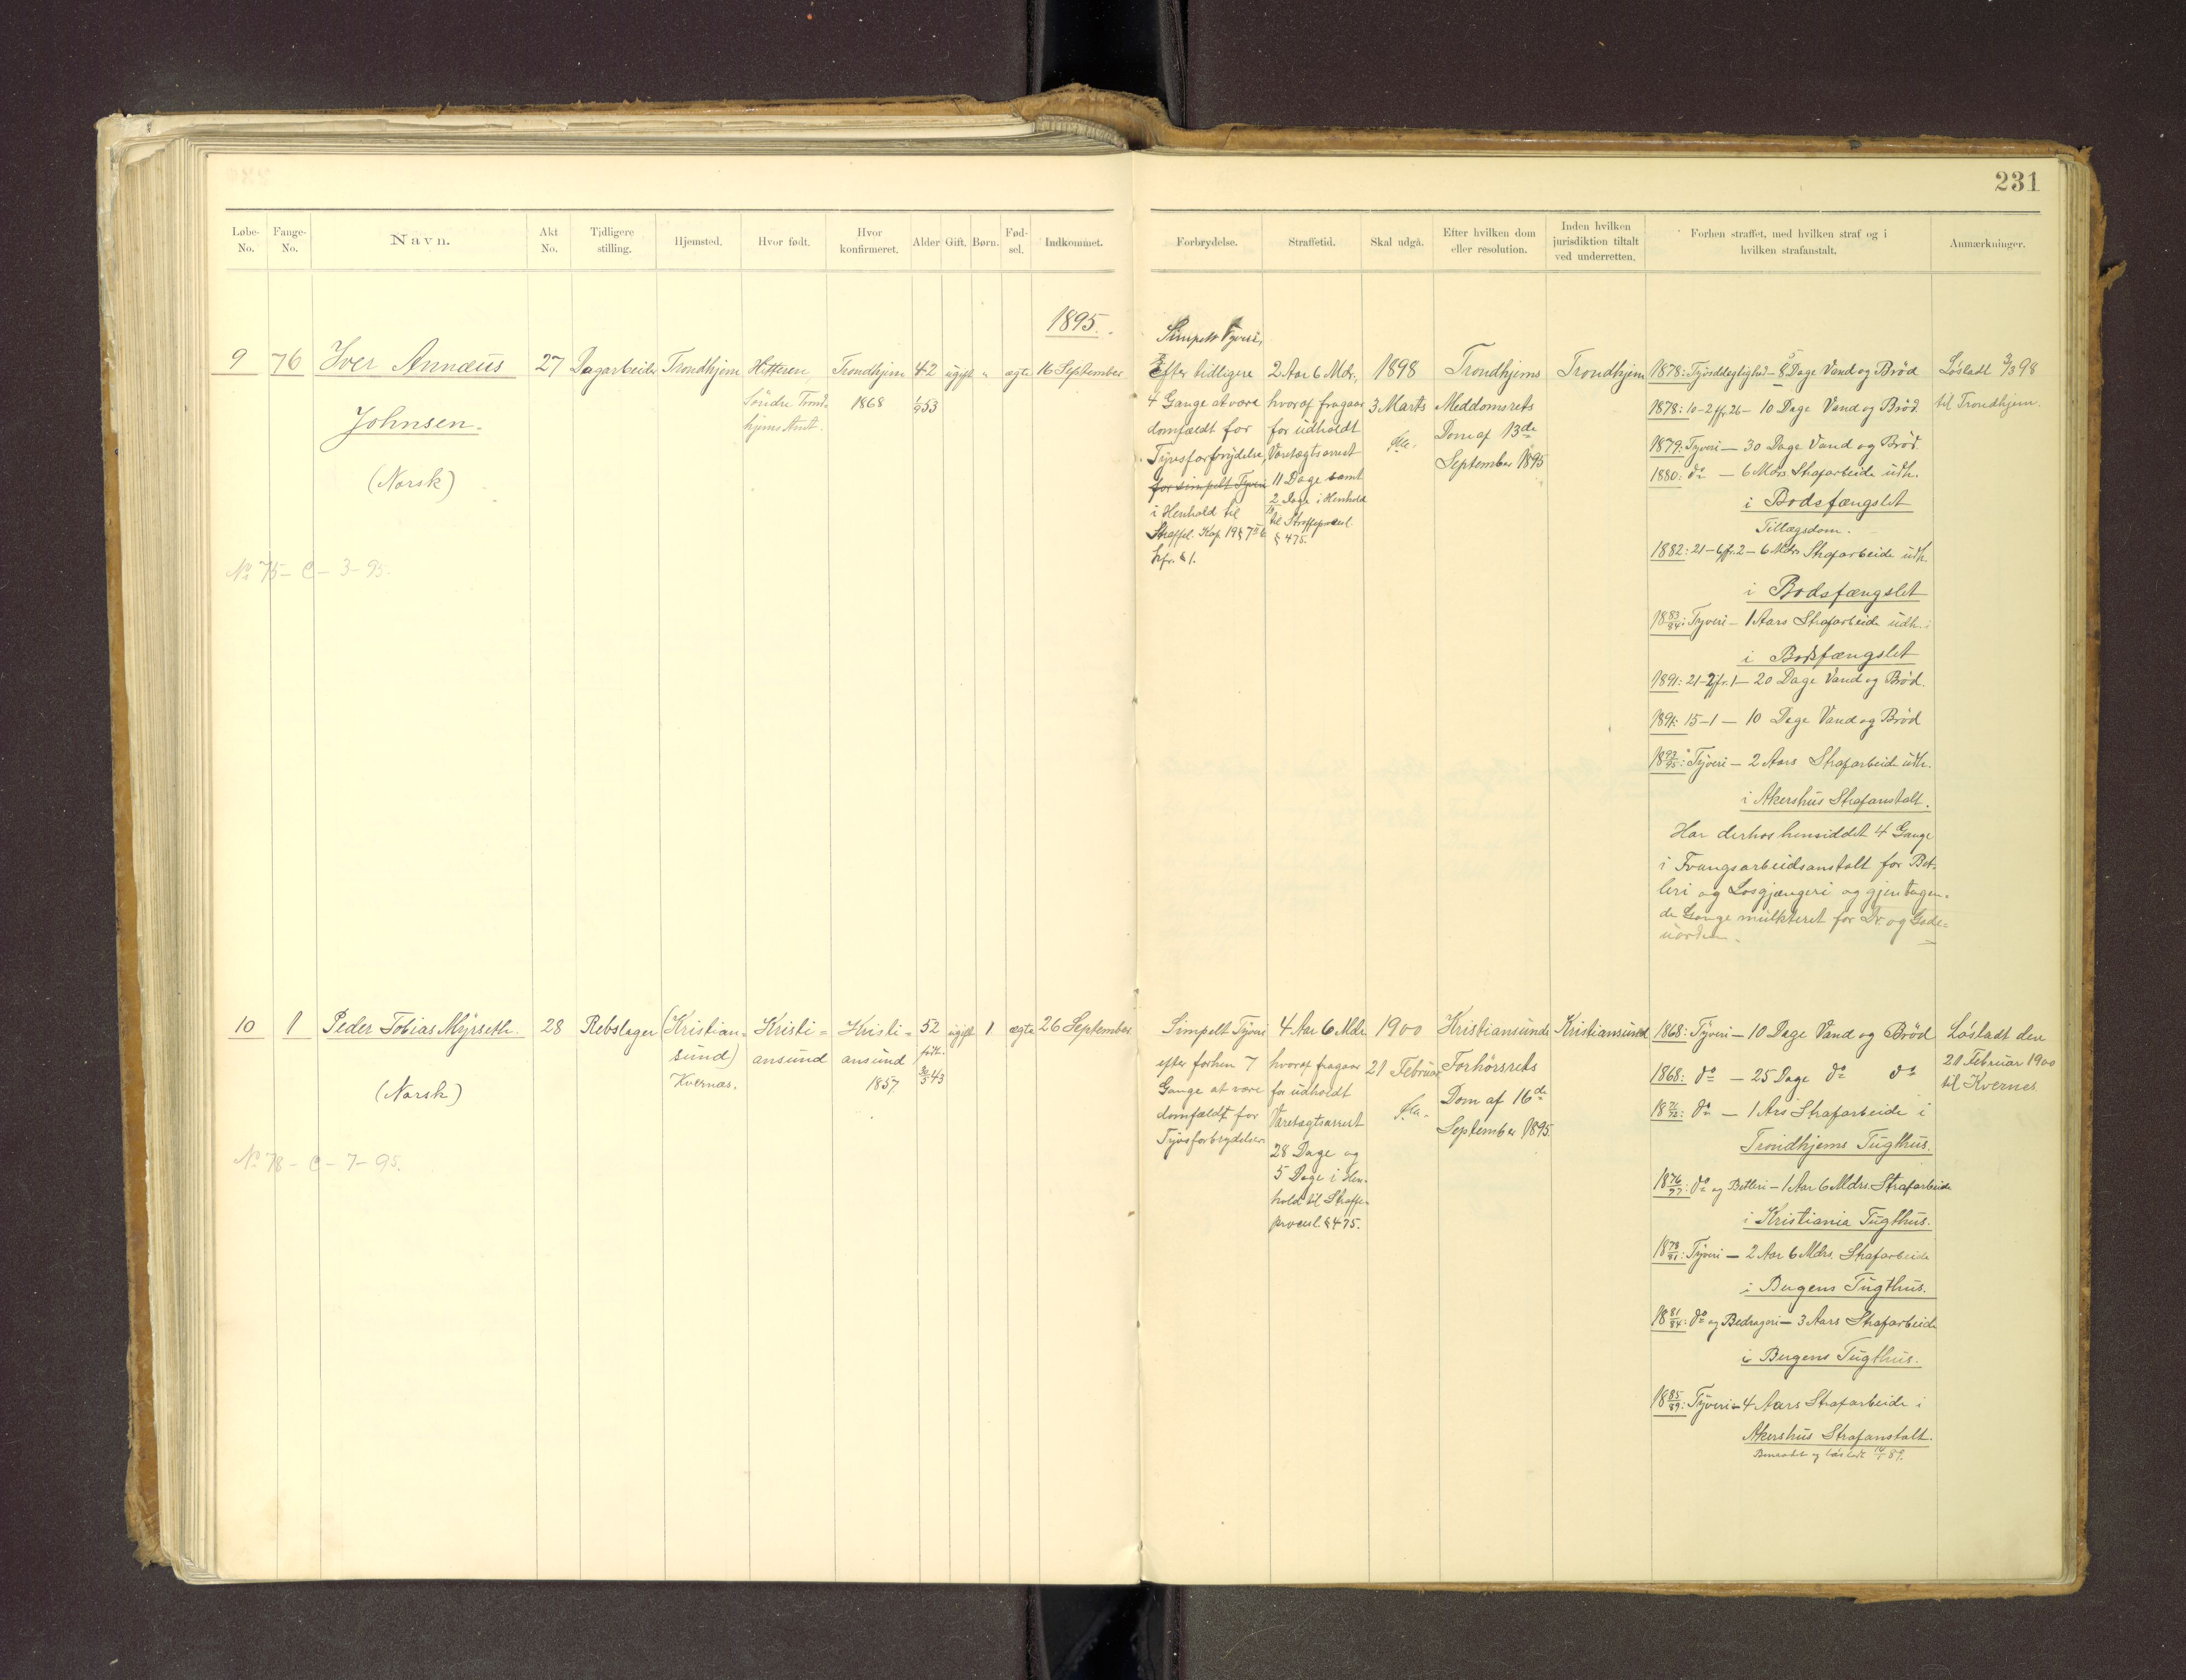 231
Løbe-No.
Fange-No.
Navn.
Akt No.
Tidligere stilling.
Hjemsted.
Hvor født.
Hvor konfirmeret.
Alder
Gift.
Børn.
Fød-sel.
Indkommet.
Forbrydelse.
Straffetid.
Skal udgå.
Efter hvilken dom eller resolution.
Inden hvilken jurisdiktion tiltalt ved underretten.
Forhen straffet, med hvilken straf og i hvilken strafanstalt.
Anmærkninger.
1895.
9
76
Iver Annæus
Johnsen.
(Norsk)
No 75 - C - 3 - 95.
27
Dagarbeider
Trondhjem
Hitteren,
Søndre Trond-
hjems Amt.
Trondhjem
1868
42
1/9 53
ugift
"
ægte
16 September
Simpelt Tyveri,
Efter tidligere
4 Gange at være
domfældt for
Tyvsforbrydelse,
for simpelt Tyveri
i Henhold til
Straffel. Kap. 19 § 7
Jvfr. § 1.
2 Aar 6 Mdr.,
hvoraf fragaar
for udholdt
Varetægtsarrest
11 Dage samt
2 Dage i Henhold
til Straffeprocesl.
§ 475.
1898
3 Marts
Trondhjems
Meddomsrets
Dom af 13de
September 1895
Trondhjem
1878: Tyvsdelagtighed - 8 Dage Vand og Brød
1878: 10-2 jfr. 26 - 10 Dage Vand og Brød.
1879: Tyveri - 30 Dage Vand og Brød
1880: do - 6 Mdrs. Strafarbeide udh.
i Bodsfængslet
Tillægsdom.
1882: 21-6 jfr. 2 - 6 Mdrs Strafarbeide udh.
i Bodsfængslet
1883/84: Tyveri - 1 Aars Strafarbeide udh. i
i Bodsfængslet
1891: 21-2 jfr. 1 - 20 Dage Vand og Brød.
1891: 15-1 - 10 Dage Vand og Brød
1893/95: Tyveri - 2 Aars Strafarbeide udh.
i Akershus Strafanstalt.
Har derhos hensiddet 4 Gange
i Tvangsarbeidsanstalt for Bet-
leri og Løsgjængeri og gjentagen-
de Gange mulkteret for Dr. og Gade-
uorden.
Løsladt 3/3 98
til Trondhjem.
10
1
Peder Tobias Myrseth.
(Norsk)
No 78 - C - 7 - 95.
28
Rebslager
(Kristian-
sund)
Kvernæs.
Kristi-
ansund
Kristi-
ansund
1857.
52
født
43
ugift
1
ægte
26 September
Simpelt Tyveri
efter forhen 7
Gange at være
domfældt for
Tyvsforbrydelser
4 Aar 6 Mdr.
hvoraf fragaar
for udholdt
Varetægtsarrest
28 Dage og
5 Dage i Hen-
hold til Straffe-
procesl. § 475.
1900
21 Februar
Kristiansunds
Forhørsrets
Dom af 16de
September 1895.
Kristiansund
1868: Tyveri - 10 Dage Vand og Brød
1868: do - 25 Dage do do
1871/72: do - 1 Års Strafarbeide i
Trondhjems Tugthus.
1876/77: do og Betleri - 1 Aar 6 Mdrs. Strafarbeide
i Kristiania Tugthus.
1878/81: Tyveri - 2 Aar 6 Mdrs. Strafarbeide
i Bergens Tugthus.
1881/84: do og Bedrageri - 3 Aars Strafarbeide
i Bergens Tugthus.
1885/89: Tyveri - 4 Aars Strafarbeide i
Akershus Strafanstalt.
Benaadet og løsladt 89.
Løsladt den
21 Februar 1900
til Kvernes